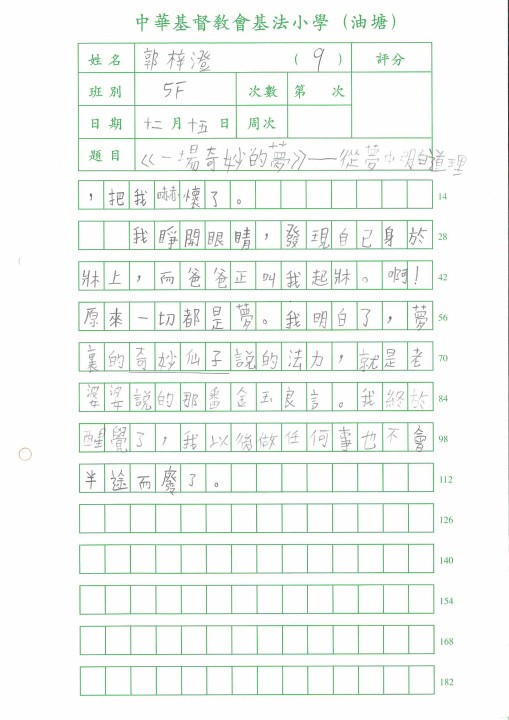 中華基督教會基法小學（油塘）
姓名 郭梓澄 （9） 評分
班別 5F 次數 第 次
日期 十二月十五日 周次
題目 《一場奇妙的夢》——從夢中明白道理
，把我嚇懷了。 14
我睜開眼睛，發現自己身於 28
牀上，而爸爸正叫我起牀。啊！ 42
原來一切都是夢。我明白了，夢 56
裏的奇妙仙子說的法力，就是老 70
婆婆說的那番金玉良言。我終於 84
醒覺了，我以後做任何事也不會 98
半途而廢了。 112
126
140
154
168
182